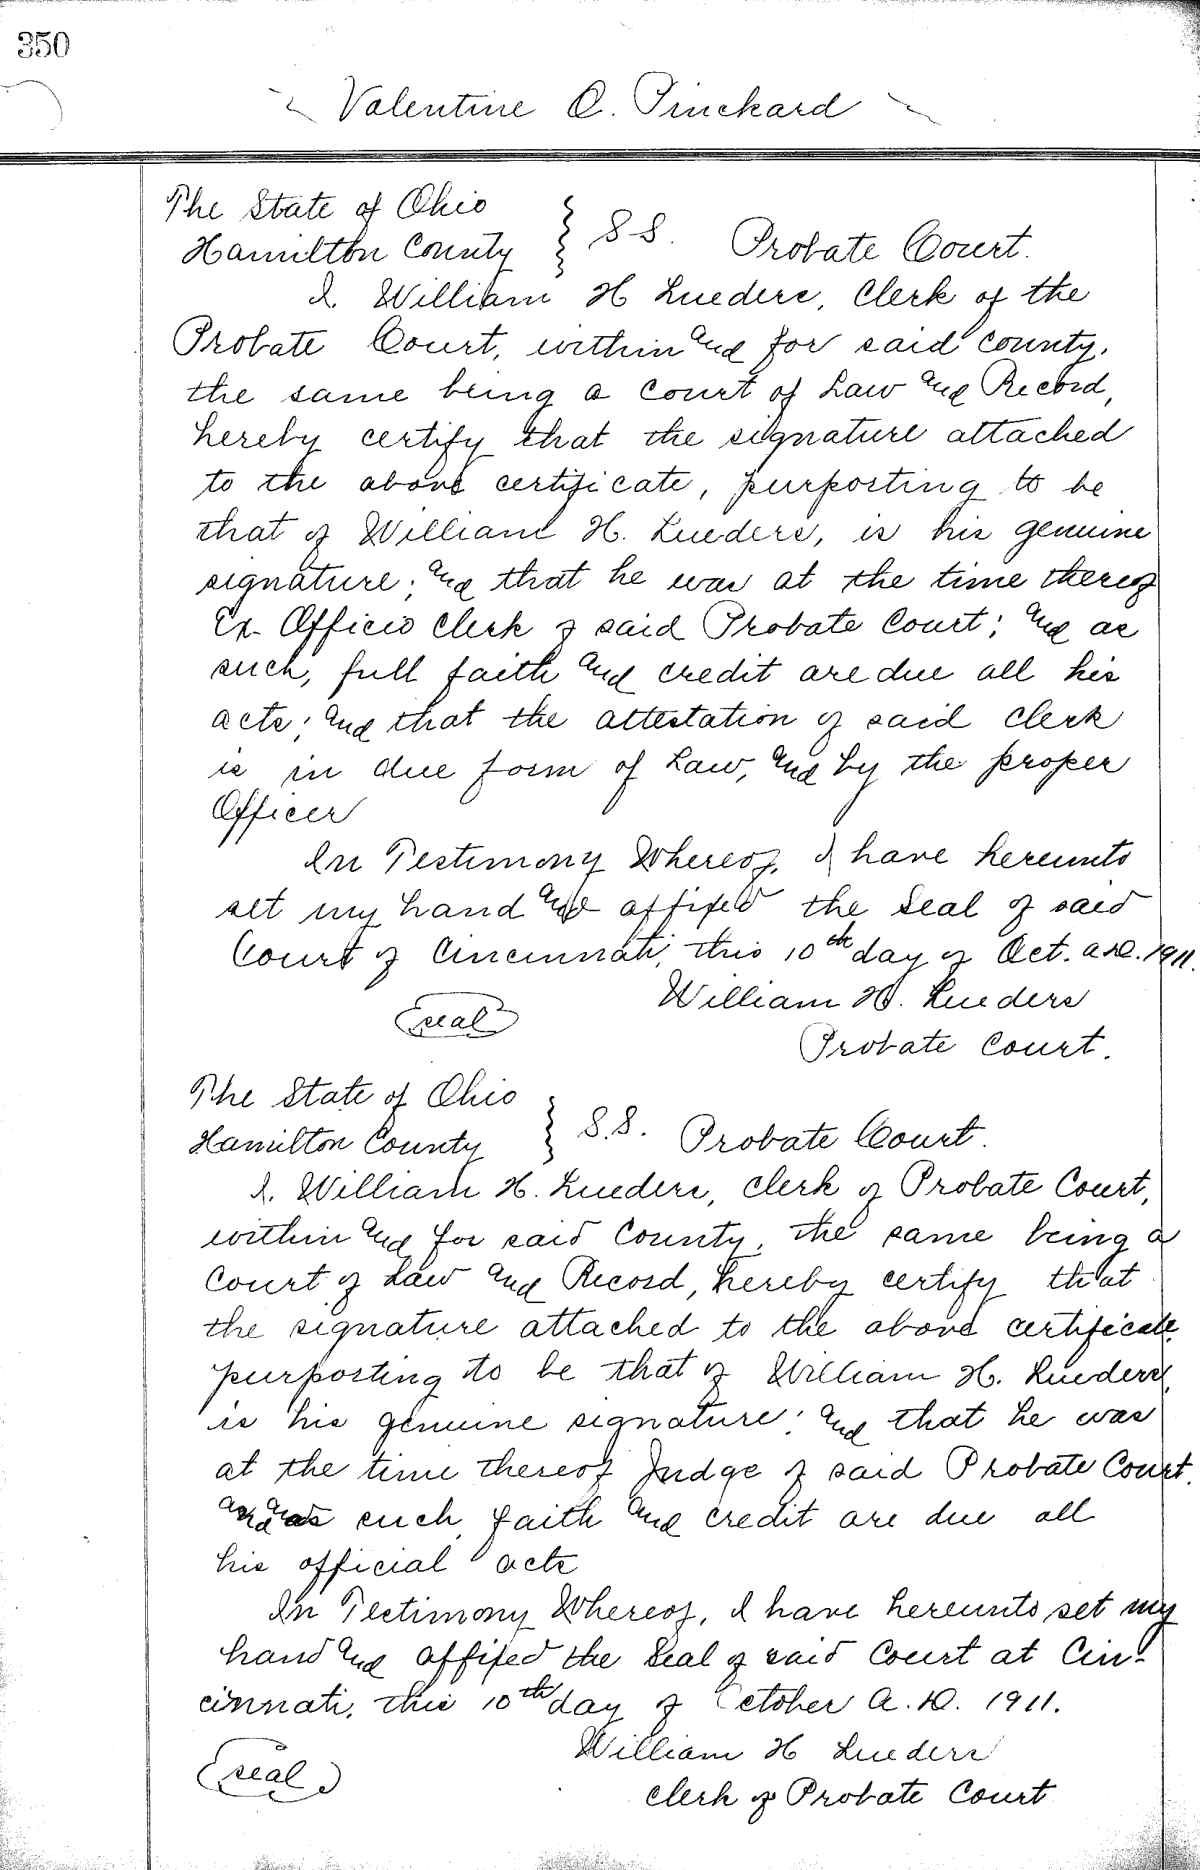 350
Valentine O. Pinckard
The State of Ohio
Hamilton County } S S. Probate Court.
I. William H Lueders, Clerk of the
Probate Court, within and for said county.
the same being a Court of Law and Record,
hereby certify that the signature attached
to the above certificate, purporting to be
that of William H. Lueders, is his genuine
signature; and that he was at the time thereof
Ex-Officio Clerk of said Probate Court; and as
such, full faith and credit are due all his
acts; and that the attestation of said Clerk
is in due form of Law, and by the proper
Officer
In Testimony Whereof, I have hereunto
set my hand and affixed the Seal of said
Court of Cincinnati, this 10th day of Oct. A.D. 1911.
William H. Lueders
seal
Probate Court.
The State of Ohio
Hamilton County } S.S. Probate Court.
I. William H. Lueders, Clerk of Probate Court,
within and for said County, the same being a
Court of Law and Record, hereby certify that
the signature attached to the above certificate
purporting to be that of William H. Lueders,
is his genuine signature; and that he was
at the time thereof Judge of said Probate Court.
and as such, faith and credit are due all
his official acts
In Testimony Whereof, I have hereunto set my
hand and affixed the Seal of said Court at Cin-
cinnati, this 10th day of October A.D. 1911.
William H Lueders
seal
Clerk of Probate Court